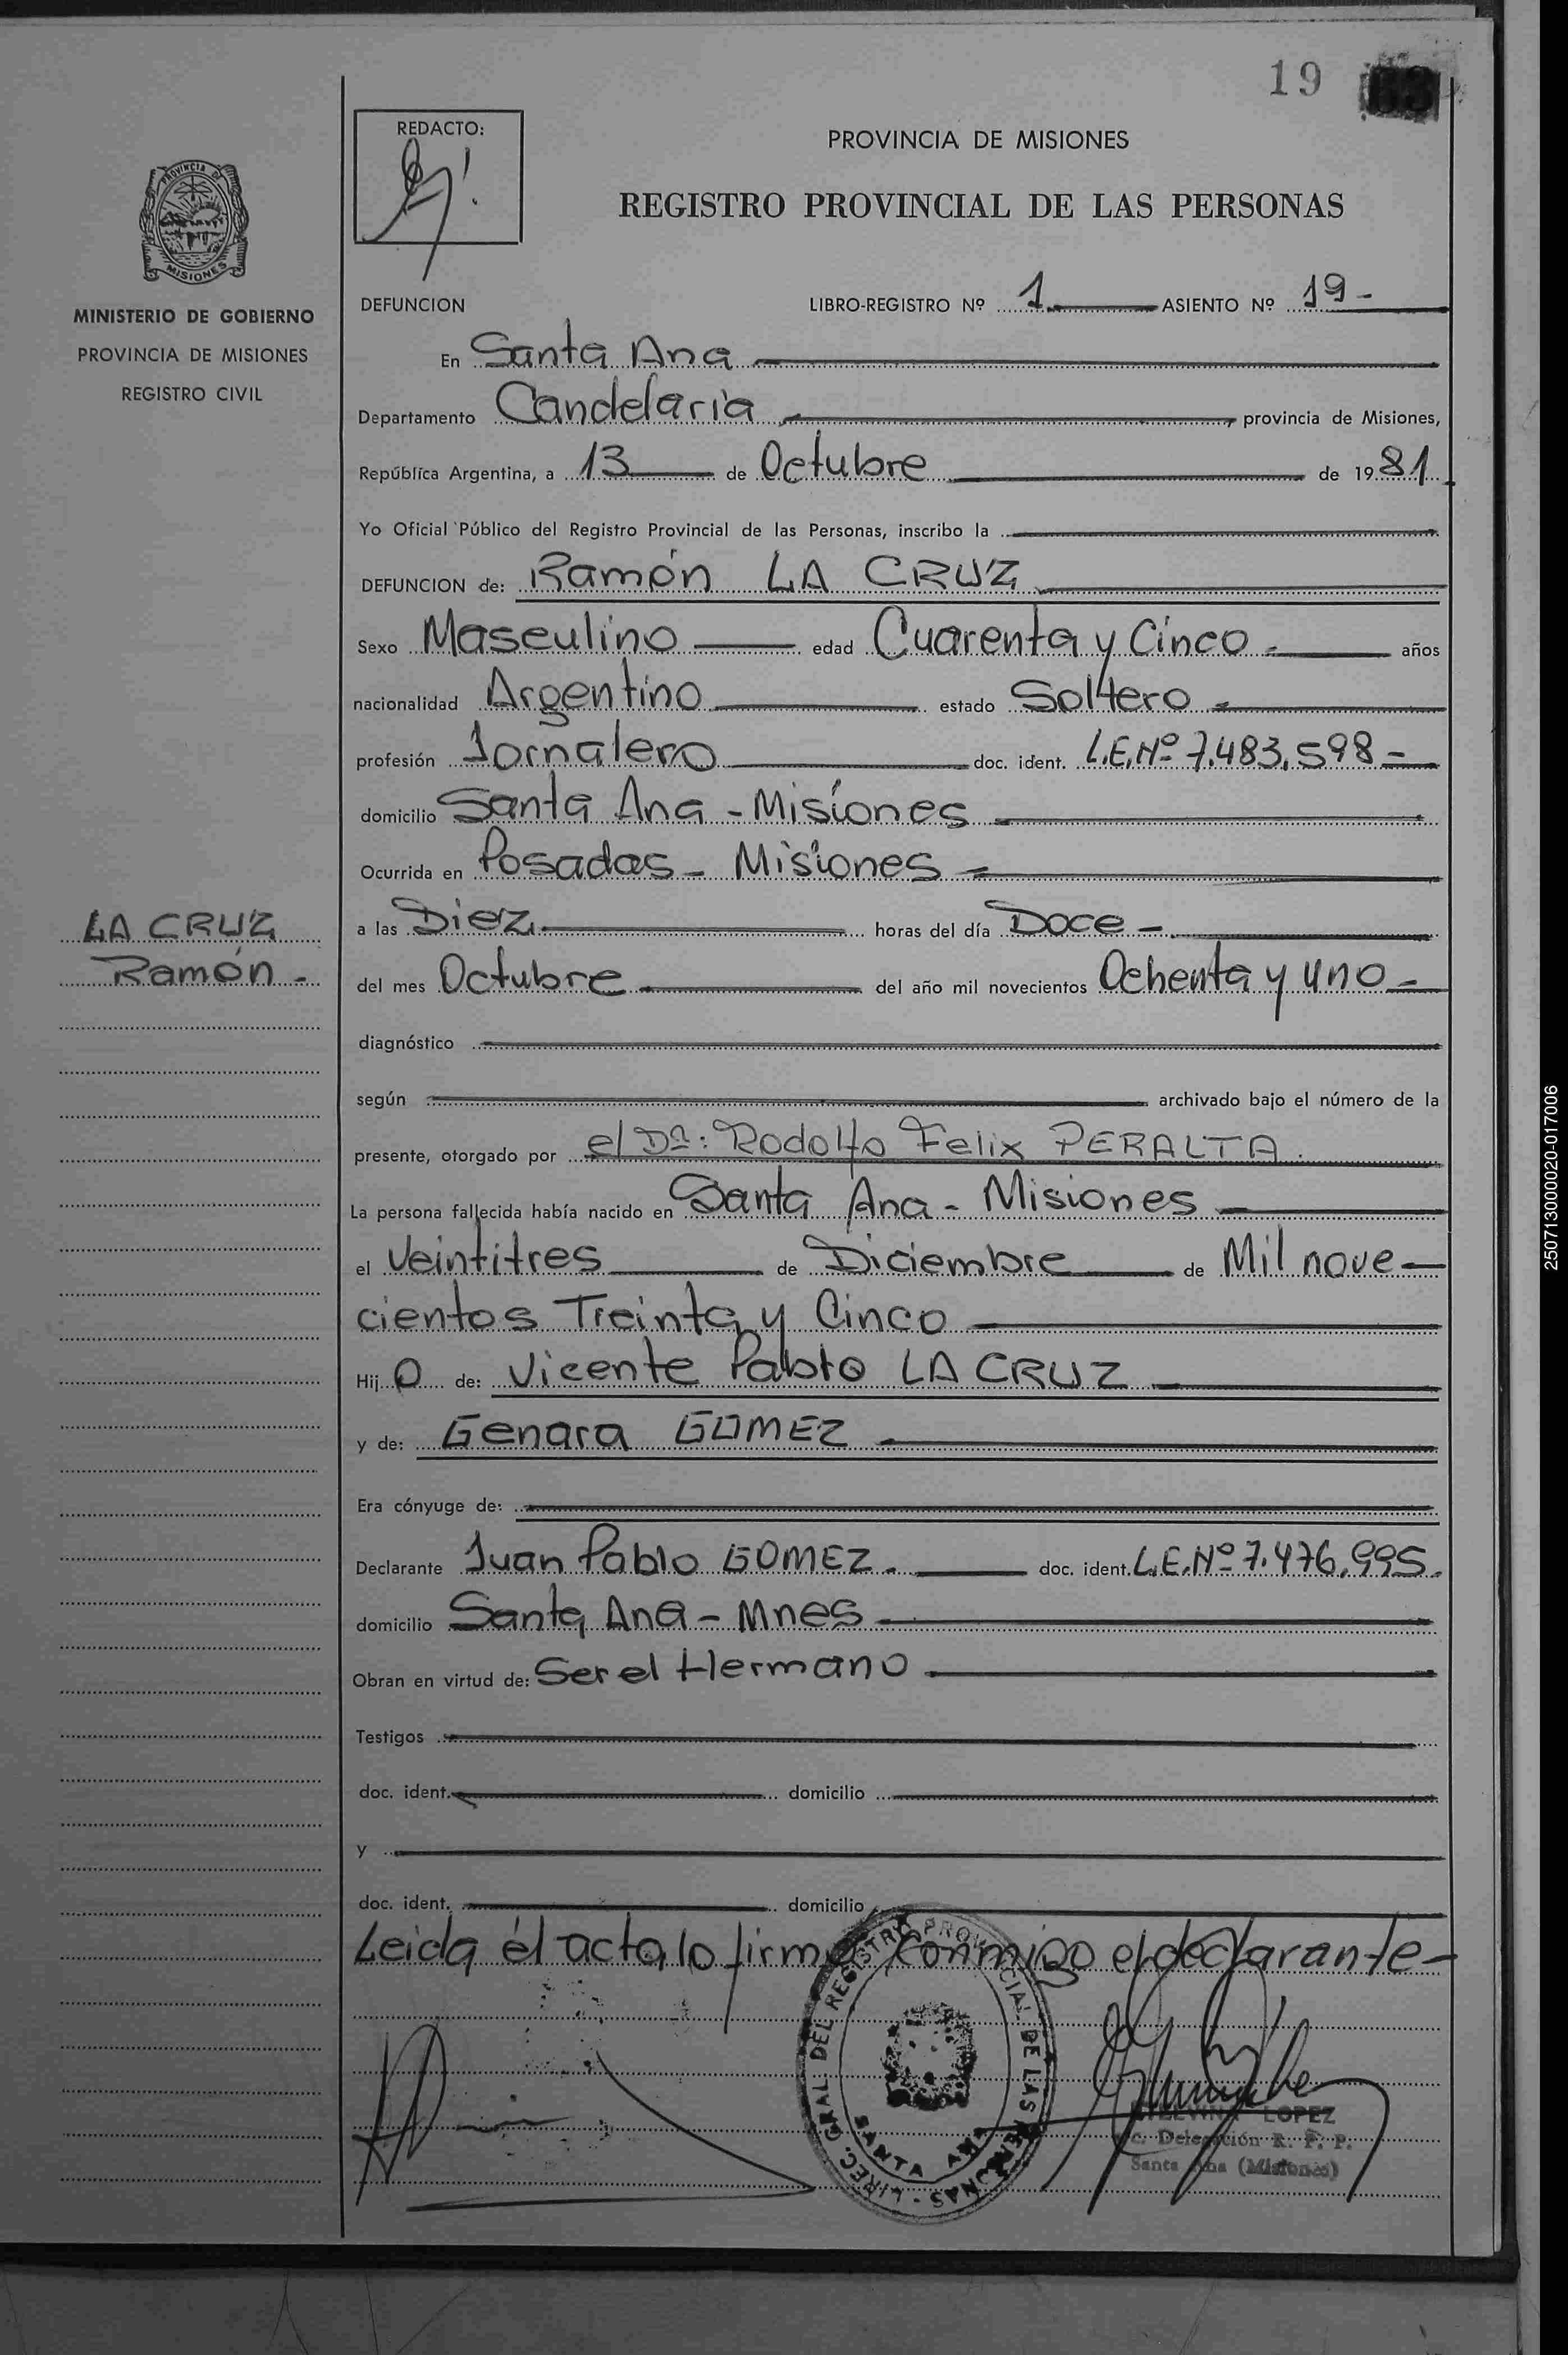 19
REDACTO:
PROVINCIA DE MISIONES
REGISTRO PROVINCIAL DE LAS PERSONAS
PROVINCIA DE
MISIONES
MINISTERIO DE GOBIERNO
PROVINCIA DE MISIONES
REGISTRO CIVIL
DEFUNCION LIBRO-REGISTRO Nº 1 ASIENTO Nº 19-
En Santa Ana
Departamento Candelaria provincia de Misiones,
República Argentina, a 13 de Octubre de 1981
Yo Oficial Público del Registro Provincial de las Personas, inscribo la
DEFUNCION de: Ramón LA CRUZ
Sexo Masculino edad Cuarenta y Cinco años
nacionalidad Argentino estado Soltero
profesión Jornalero doc. ident. L.E.Nº 7.483.598
domicilio Santa Ana - Misiones
Ocurrida en Posadas - Misiones
LA CRUZ
Ramón -
a las Diez horas del día Doce
del mes Octubre del año mil novecientos Ochenta y uno
diagnóstico
según archivado bajo el número de la
presente, otorgado por el Dr: Rodolfo Felix PERALTA
La persona fallecida había nacido en Santa Ana - Misiones
el Veintitres de Diciembre de Mil nove
cientos Treinta y Cinco
Hijo de: Vicente Pablo LA CRUZ
y de: Genara GOMEZ
Era cónyuge de:
Declarante Juan Pablo GOMEZ. doc. ident. L.E.Nº 7.476.995.
domicilio Santa Ana - Mnes
Obran en virtud de: Ser el Hermano
Testigos
doc. ident. domicilio
y
doc. ident. domicilio
Leida él acta lo firma conmigo el declarante
DIREC. GRAL. DEL REGISTRO PROVINCIAL DE LAS PERSONAS
SANTA ANA
LOPEZ
Delegación R. P. P.
Santa Ana (Misiones)
25071300020-017006